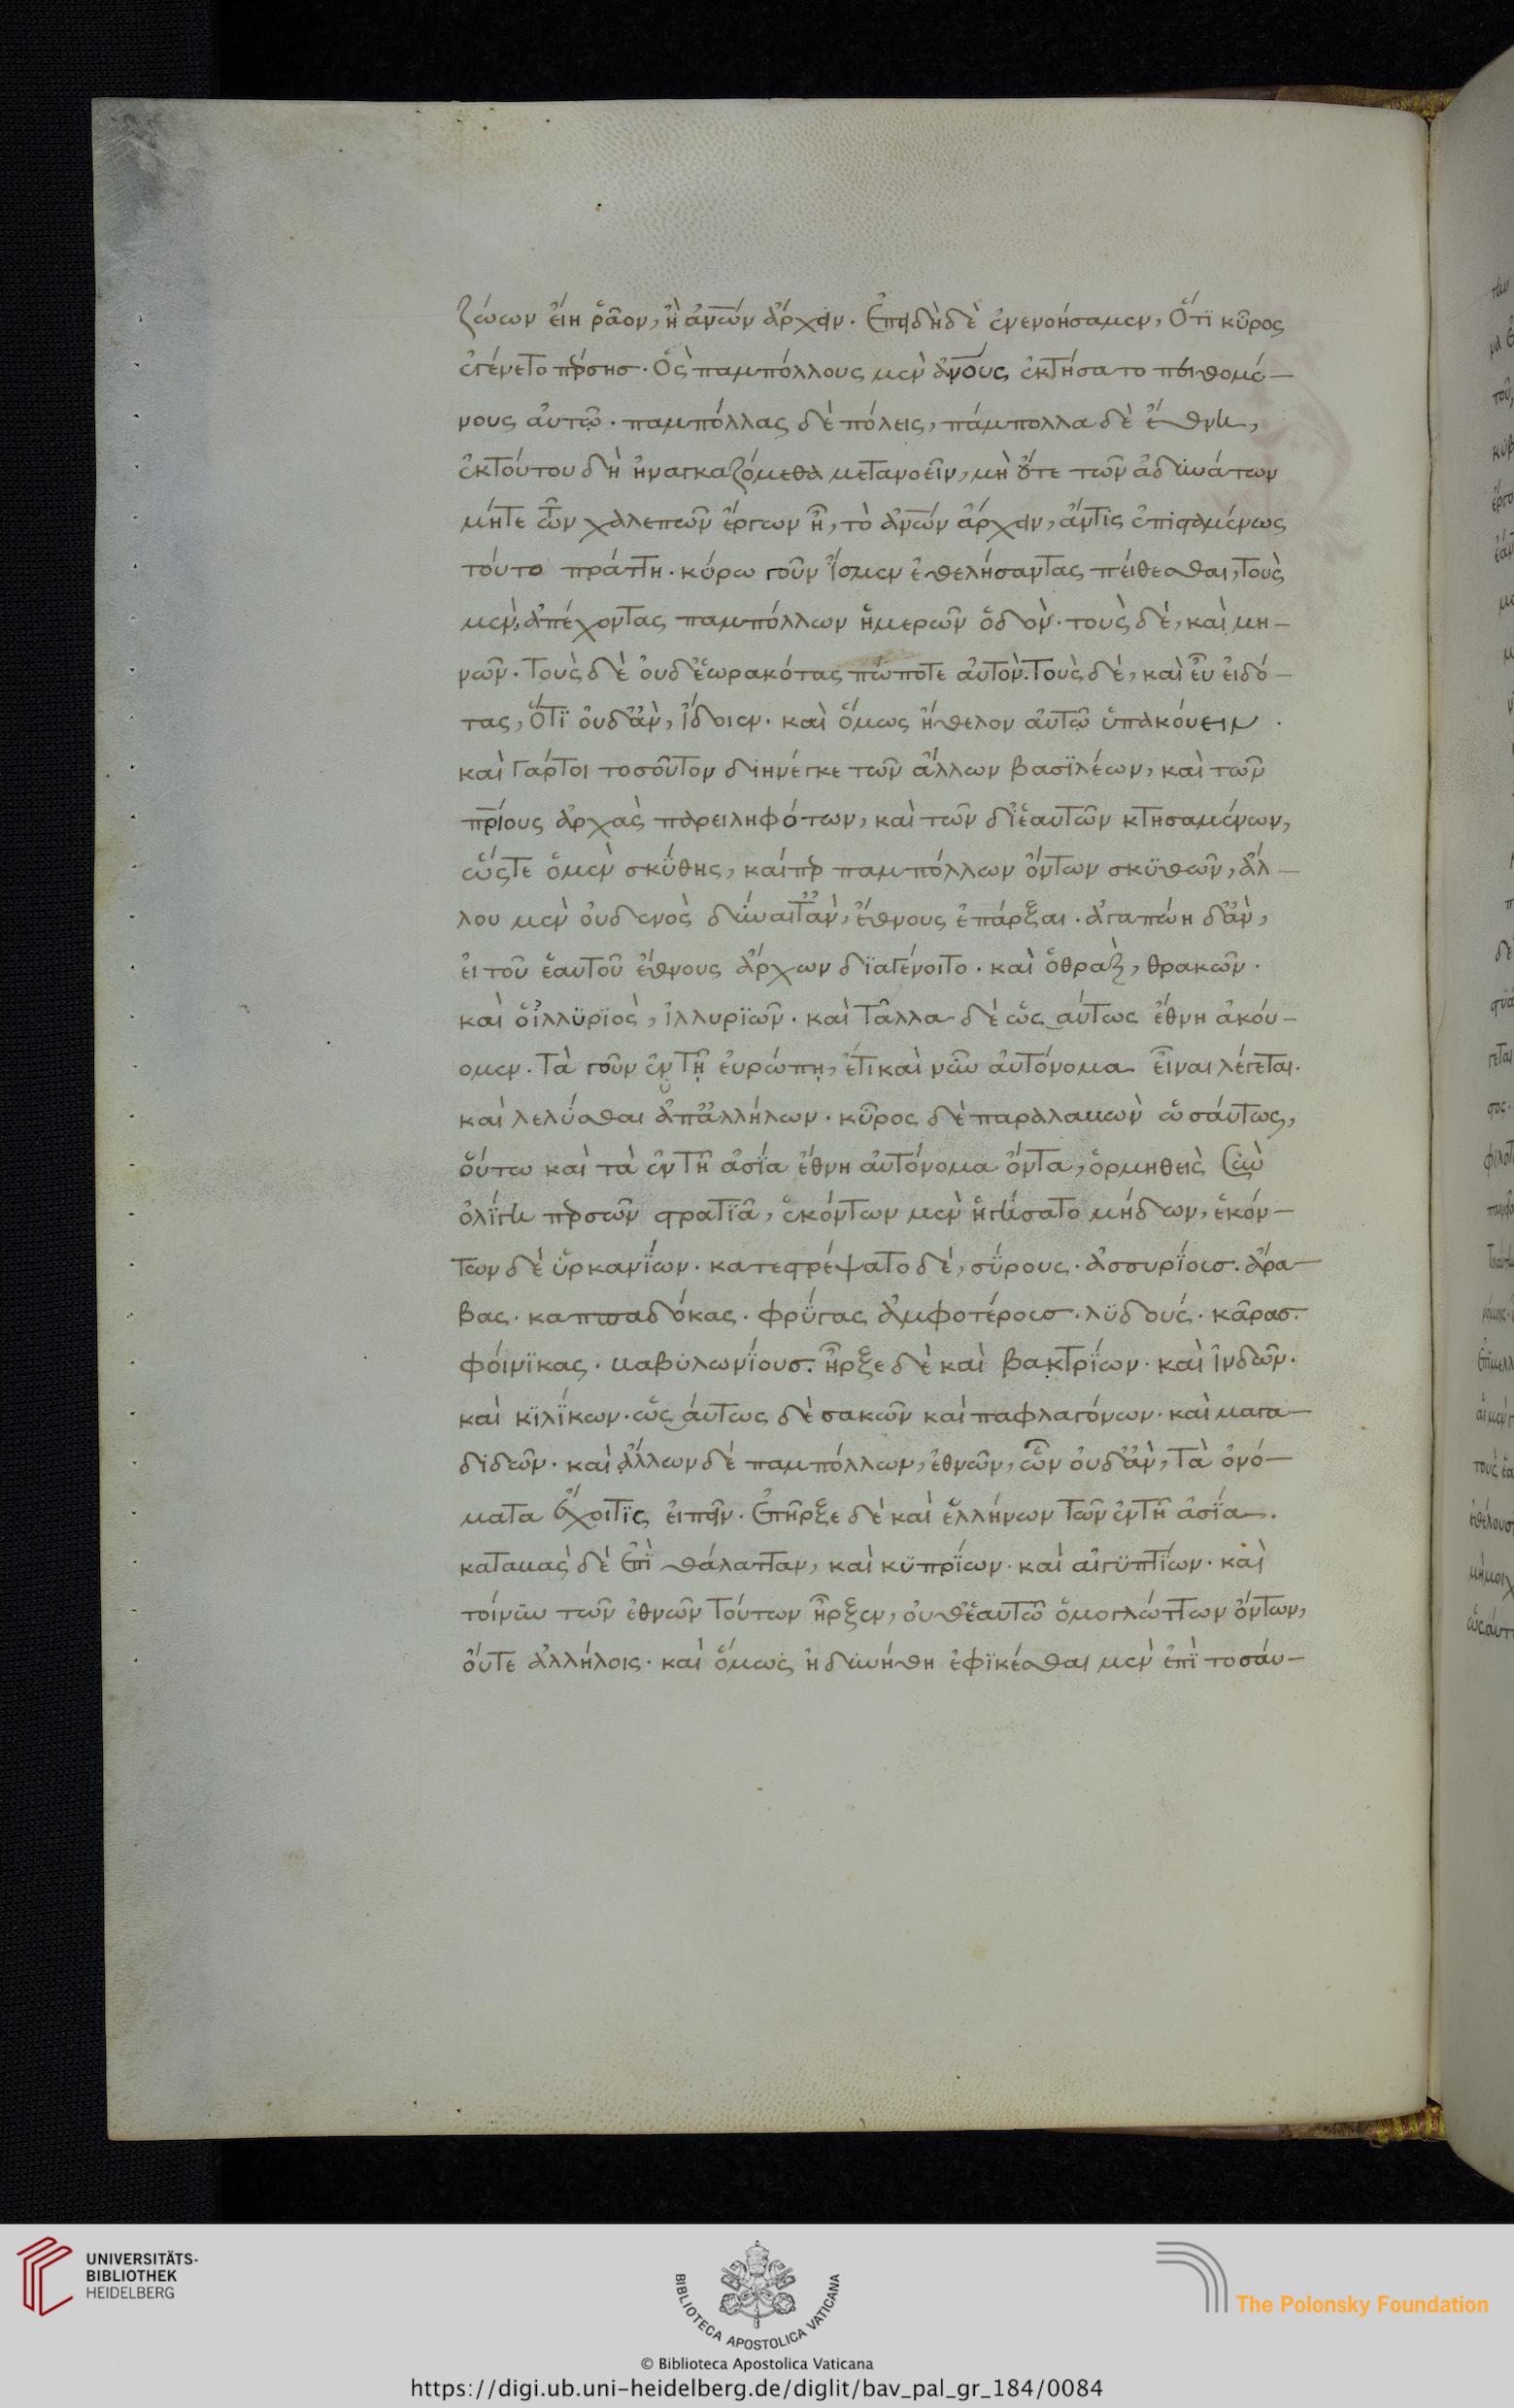 ζώων εἴη ῥᾶον, ἢ ἀν̅ων ἄρχειν. Ἐπειδὴ δὲ ἐνενοήσαμεν, Ὅτϊ κῦρος
ἐγένετο πέρσης. Ὃς παμπόλλους μὲν ἀν̅ους ἐκτήσατο πειθομέ-
νους αὐτῷ. παμπόλλας δὲ πόλεις, πάμπολλα δὲ ἔθνη,
ἐκτούτου δὴ ἠναγκαζόμεθα μετανοεῖν, μὴ οὔτε τῶν ἀδυνάτων
μήτε τῶν χαλεπῶν ἔργων ἦ, τὸ ἀν̅ων ἄρχειν, ἄντις ἐπισταμένως
τούτο πράττη. κύρω γοῦν ἴσμεν ἐθελήσαντας πείθεσθαι, τοὺς
μὲν, ἀπέχοντας παμπόλλων ἡμερῶν ὁδὸν. τοὺς δὲ, καὶ μη-
νῶν. Τοὺς δὲ οὐδ' ἑωρακότας πώποτε αὐτὸν. Τοὺς δὲ, καὶ εὖ εἰδό-
τας, Ὅτϊ οὐδ' ἂν, ἴδοιεν. καὶ ὅμως ἤθελον αὐτῷ ὑπακούειν.
καὶ γάρτοι τοσοῦτον διηνέγκε τῶν ἄλλων βασϊλέων, καὶ τῶν
πρ̅ίους ἀρχὰς παρειληφότων, καὶ τῶν δἰ ἑαυτῶν κτησαμένων,
ὥςτε ὁμὲν σκΰθης, καίπερ παμπόλλων ὄντων σκϋθῶν, ἄλ-
λου μὲν οὐδενὸς δύναιτ' ἂν, ἔθνους ἐπάρξαι. ἀγαπώη δ' ἂν,
εἰ τοῦ ἑαυτοῦ ἔθνους ἄρχων δϊαγένοιτο. καὶ ὁθρὰξ, θρακῶν.
καὶ ὁἰλλϋρϊὸς, ἰλλυρϊῶν. καὶ τἆλλα δὲ ὡς αύτως ἔθνη ἀκού-
ομεν. Τὰ γοῦν ἐν τῇ εὐρώπῃ, ἔτι καὶ νῦν αὐτόνομα εἶναι λέγεται.
καὶ λελύσθαι ἀπ' ἀλλήλων. κῦρος δὲ παραλαβὼν ὡσάυτως,
ὅυτω καὶ τὰ ἐν τῆ ἀσΐα ἔθνη αὐτόνομα ὄντα, ὁρμηθεὶς σὺν
ὀλΐγη περσῶν στρατϊᾶ, ἑκόντων μὲν ἡγήσατο μήδων, ἑκόν-
των δὲ ὑρκανΐων. κατεστρέψατο δὲ, σΰρους. ἀσσυρΐους. ἄρα-
βας. καππαδόκας. φρΰγας ἀμφοτέρους. λϋδούς. κᾶρας.
φόινϊκας. βαβυλωνΐους. ἦρξε δὲ καὶ βακτρΐων. καὶ ἰνδῶν.
καὶ κϊλΐκων. ὡς αύτως δὲ σακῶν καὶ παφλαγόνων. καὶ μαγα-
διδῶν. καὶ ἄλλων δὲ παμπόλλων, ἐθνῶν, ὧν οὐδ' ἂν, τὰ ὀνό-
ματα ἔχοιτϊς ἐιπεῖν. Ἐπῆρξε δὲ καὶ ἑλλήνων τῶν ἐν τῆ ἀσΐα.
καταβὰς δὲ ἐπῒ θάλατταν, καὶ κϋπρΐων. καὶ αἰγϋπτΐων. καὶ
τοίνυν τῶν ἐθνῶν τούτων ἦρξεν, οὐθ' ἑαυτῶ ὁμογλώττων ὄντων,
οὔτε ἀλλήλοις. καὶ ὅμως ἠδυνήθη ἐφϊκέσθαι μὲν ἐπῒ τοσάυ-
UNIVERSITÄTS-
BIBLIOTHEK
HEIDELBERG
BIBLIOTECA APOSTOLICA VATICANA
The Polonsky Foundation
© Biblioteca Apostolica Vaticana
https://digi.ub.uni-heidelberg.de/diglit/bav_pal_gr_184/0084